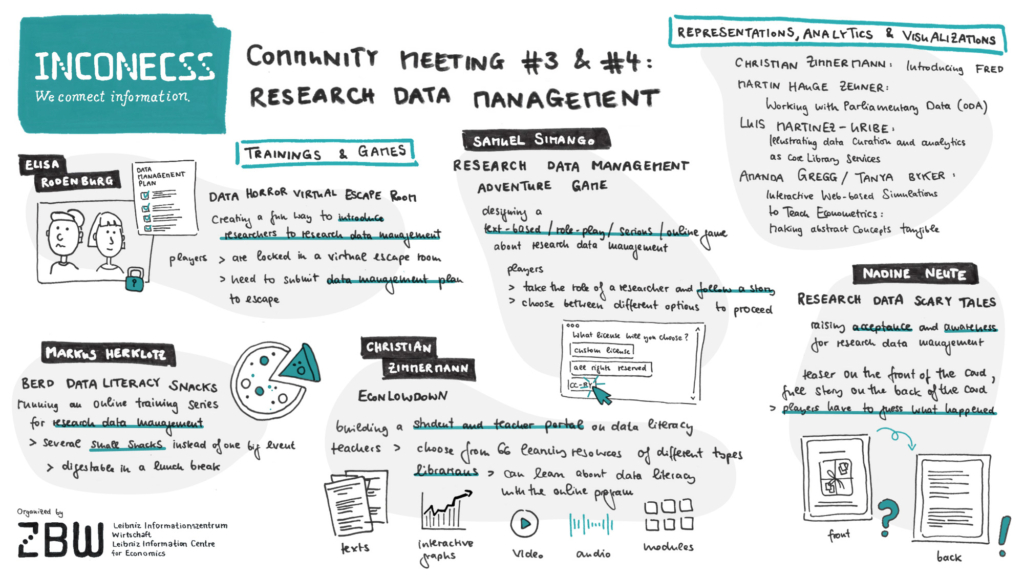 INCONECSS
We connect information.
COMMUNITY MEETING #3 & #4:
RESEARCH DATA MANAGEMENT
REPRESENTATIONS, ANALYTICS & VISUALIZATIONS
CHRISTIAN ZIMMERMANN: Introducing FRED
MARTIN HAUGE ZEUNER:
Working with Parliamentary Data (ODA)
LUIS MARTINEZ-URIBE:
Illustrating data curation and analytics
as Core Library Services
AMANDA GREGG / TANYA BYKER:
Interactive Web-based Simulations
to Teach Econometrics:
making abstract concepts tangible
TRAININGS & GAMES
ELISA
RODENBURG
DATA
MANAGEMENT
PLAN
DATA HORROR VIRTUAL ESCAPE ROOM
Creating a fun way to introduce
researchers to research data management
players > are locked in a virtual escape room
> need to submit data management plan
to escape
SAMUEL SIMANGO
RESEARCH DATA MANAGEMENT
ADVENTURE GAME
designing a
text-based / role-play / serious / online game
about research data management
players
> take the role of a researcher and follow a story
> choose between different options to proceed
What license will you choose?
custom license
all rights reserved
CC-BY
MARKUS HERKLOTZ
BERD DATA LITERACY SNACKS
running an online training series
for research data management
> several small snacks instead of one big event
> digestable in a lunch break
CHRISTIAN
ZIMMERMANN
ECONLOWDOWN
building a student and teacher portal on data literacy
teachers > choose from 66 learning resources of different types
librarians > can learn about data literacy
with the online program
texts
interactive
graphs
video
audio
modules
NADINE NEUTE
RESEARCH DATA SCARY TALES
raising acceptance and awareness
for research data management
teaser on the front of the card,
full story on the back of the card
> players have to guess what happened
front
?
back
!
Organized by
ZBW
Leibniz Informationszentrum
Wirtschaft
Leibniz Information Centre
for Economics